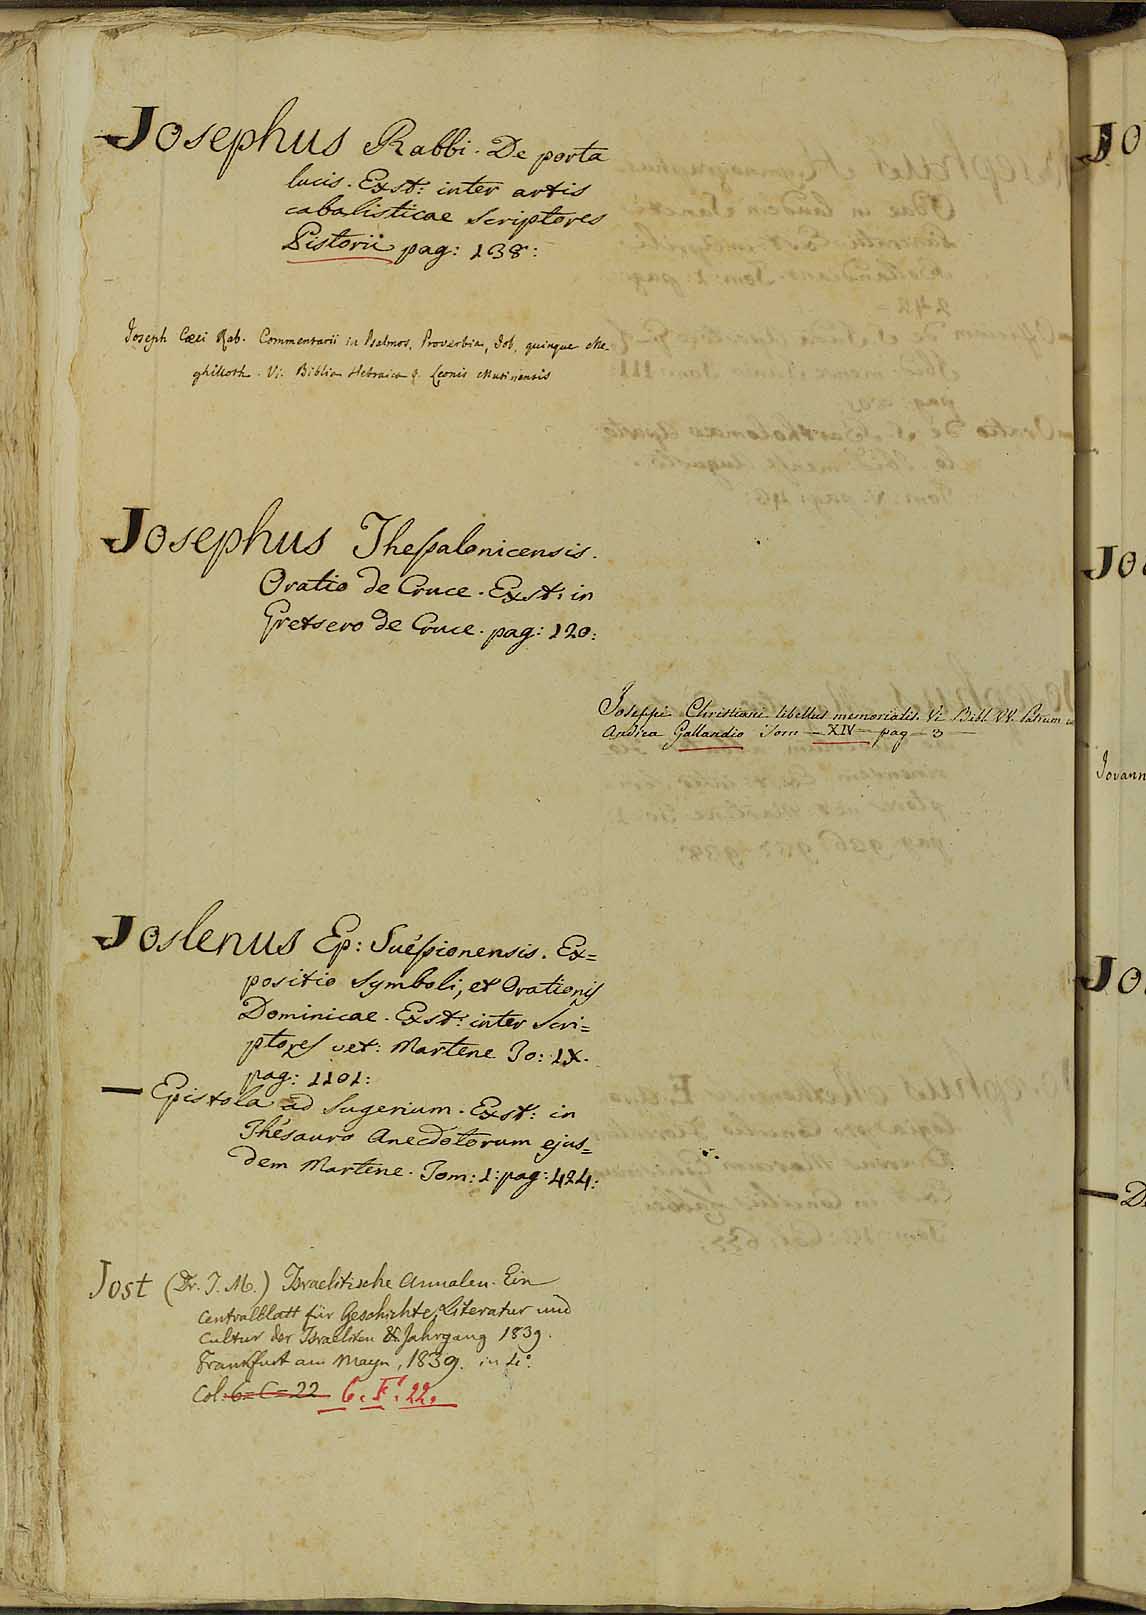 Josephus Rabbi. De porta
lucis. Exst: inter artis
cabalisticae Scriptores
Pistorii pag: 138:
Joseph Cæci Rab. Commentarii in Psalmos, Proverbia, Job, quinque Me
ghilloth. Vi. Biblia Hebraica Leonis Mutinensis
Josephus Thessalonicensis.
Oratio de Cruce. Exst: in
Gretsero de Cruce. pag: 120:
Joseppi Christiani libellus memorialis. Vi Bibl. VV. Patrum
Andrea Gallandio Tom — XIV — pag — 3 —
Joslenus Ep: Suéssionensis. Ex=
positio Symboli, et Orationis
Dominicae. Exst: inter Scri=
ptores vet: Martene To: IX.
pag: 1101:
— Epistola ad Sugerium. Exst: in
Thésauro Anecdotorum ejus=
dem Martene. Tom: 1: pag: 424:
Jost (Dr. J. M.) Israelitische Annalen. Ein
Centralblatt für Geschichte, Literatur und
Cultur der Israeliten &. Jahrgang 1839.
Frankfurt am Mayn, 1839. in 4°.
Col: 6= C= 22 6. F. 22.
Jo
Jo
Jovann
Jo
— D